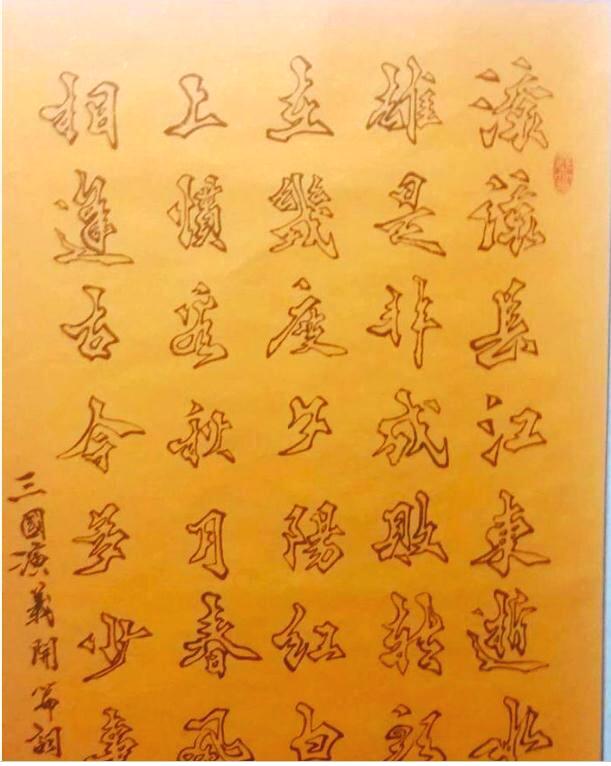 滚滚長江東逝水
雄是非成敗转頭
在幾度夕陽红白
上慣看秋月春風
相逢古今多少事
三國演義開篇詞